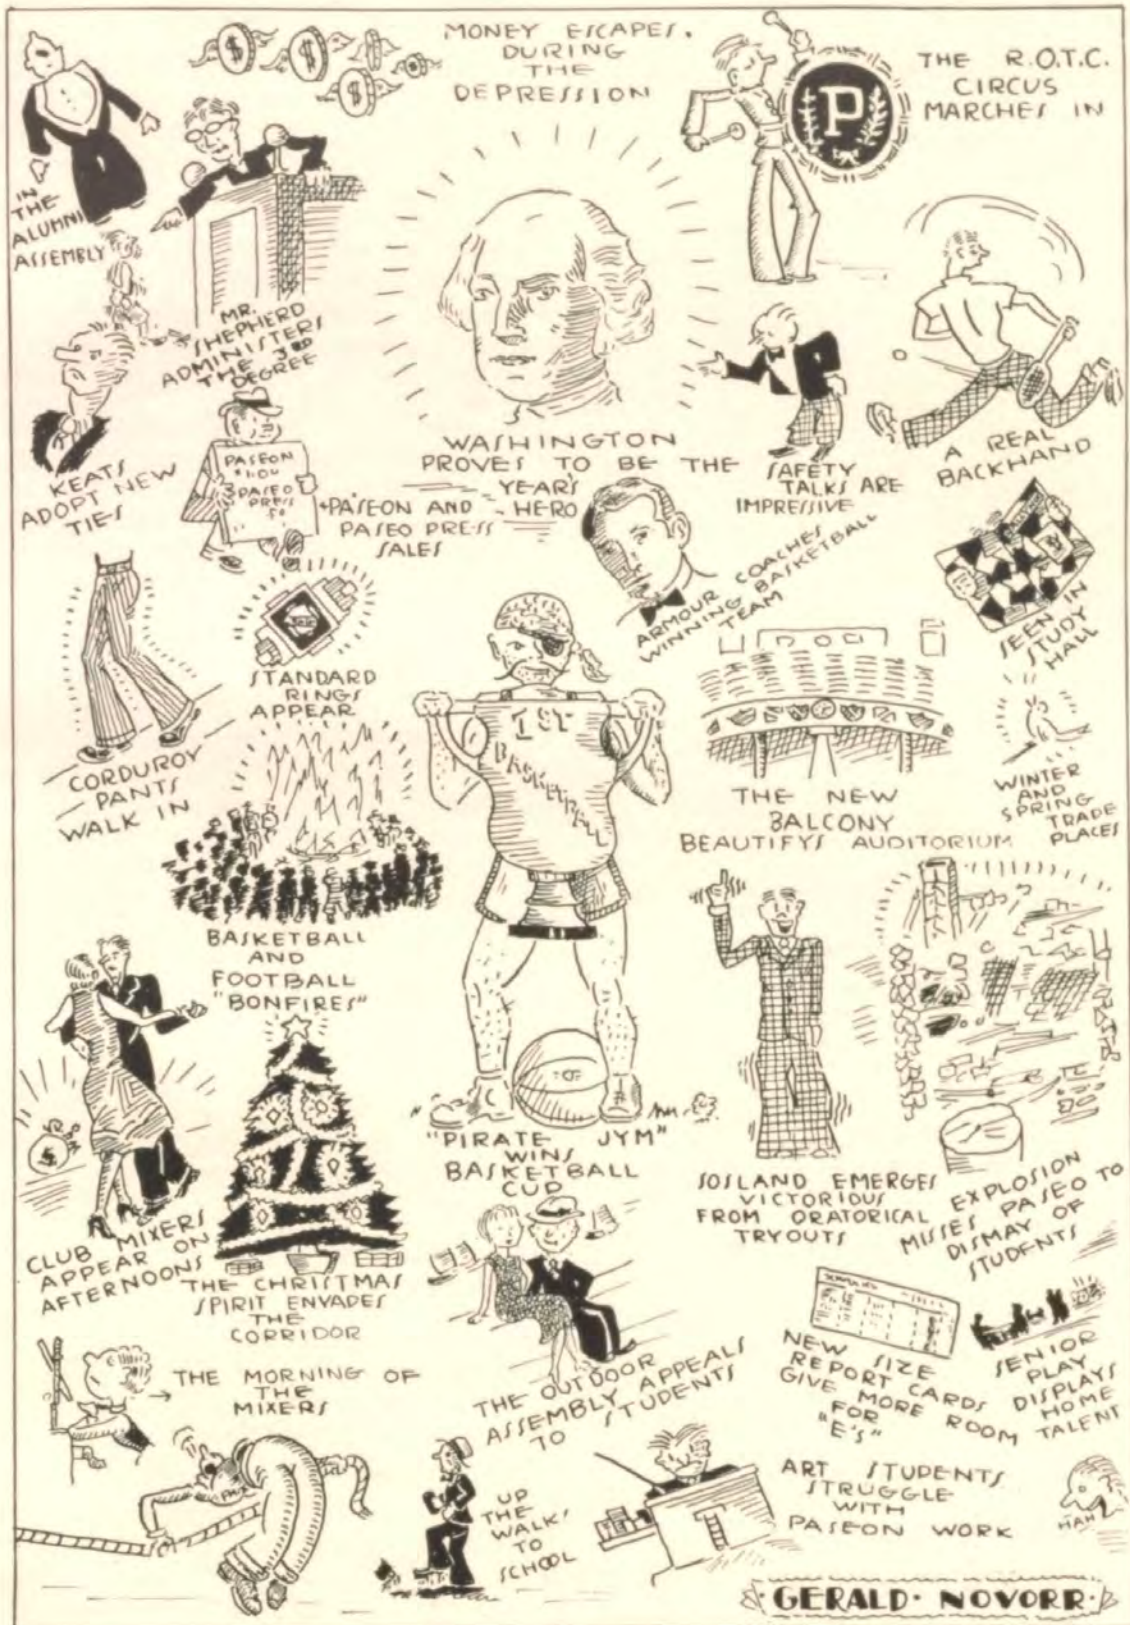 MONEY ESCAPES.
DURING
THE
DEPRESSION
THE R.O.T.C.
CIRCUS
MARCHES IN
P
IN
THE
ALUMNI
ASSEMBLY
MR.
SHEPHERD
ADMINISTERS
THE 3RD
DEGREE
KEATS
ADOPT NEW
TIES
PASEON
$1.00
PASEO
PRESS
50
"PASEON AND
PASEO PRESS
SALES
WASHINGTON
PROVES TO BE THE
YEAR'S
HERO
SAFETY
TALKS ARE
IMPRESSIVE
A REAL
BACKHAND
ARMOUR COACHES
WINNING BASKETBALL
TEAM
SEEN IN
STUDY
HALL
STANDARD
RINGS
APPEAR
CORDUROY
PANTS
WALK IN
1ST
BASKETBALL
THE NEW
BALCONY
BEAUTIFYS AUDITORIUM
WINTER
AND
SPRING
TRADE
PLACES
BASKETBALL
AND
FOOTBALL
"BONFIRES"
"PIRATE JYM"
WINS
BASKETBALL
CUP
SOSLAND EMERGES
VICTORIOUS
FROM ORATORICAL
TRYOUTS
EXPLOSION
MISSES PASEO TO
DISMAY OF
STUDENTS
CLUB MIXERS
APPEAR ON
AFTERNOONS
THE CHRISTMAS
SPIRIT ENVADES
THE
CORRIDOR
THE MORNING OF
THE
MIXERS
THE OUTDOOR
ASSEMBLY APPEALS
TO STUDENTS
NEW SIZE
REPORT CARDS
GIVE MORE ROOM
FOR
"E'S"
SENIOR
PLAY
DISPLAYS
HOME
TALENT
UP
THE
WALK
TO
SCHOOL
ART STUDENTS
STRUGGLE
WITH
PASEON WORK
HAH
GERALD · NOVORR